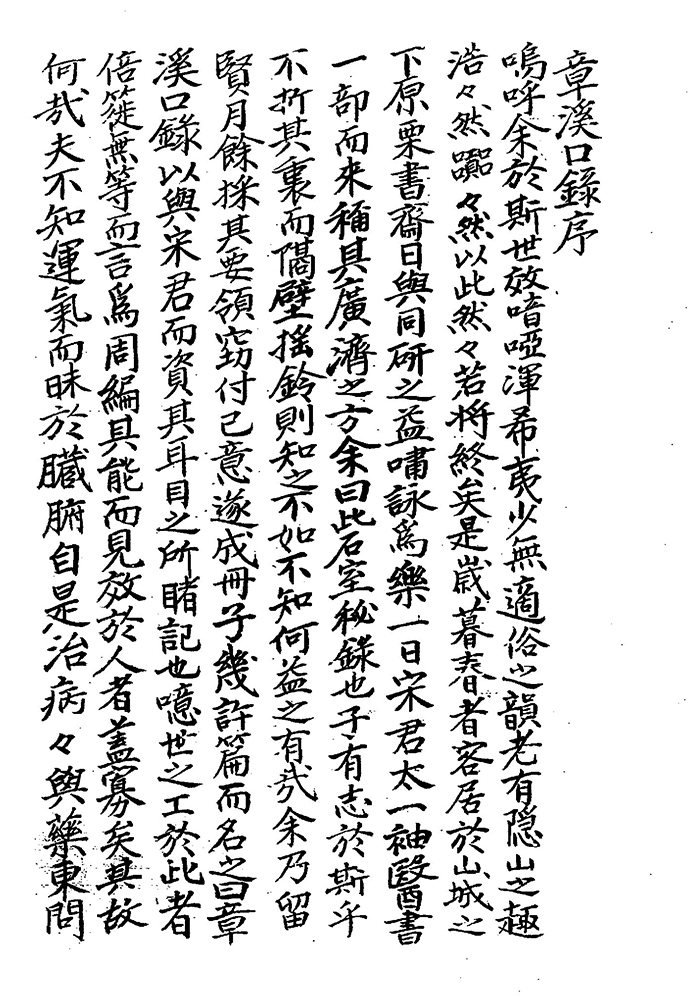 章溪口錄序
嗚呼余於斯世效喑啞渾希夷少無適俗之韻老有隐山之趣
浩々然囂々然以此然々若將終矣是歲暮春者客居於山城之
下原栗書齋日與同研之益嘯詠爲樂一日宋君太一袖醫書
一部而來稱其廣濟之方余曰此石室秘錄也子有志於斯乎
不折其裏而隔壁搖鈴則知之不如不知何益之有㢤余乃留
賢月餘採其要領窃付己意遂成冊子幾許篇而名之曰章
溪口錄以與宋君而資其耳目之所睹記也噫世之工於此者
倍簁無等而言爲周編其能而見效於人者盖寡矣其故
何㢤夫不知運氣而昧於臟腑自是治病々與藥東問